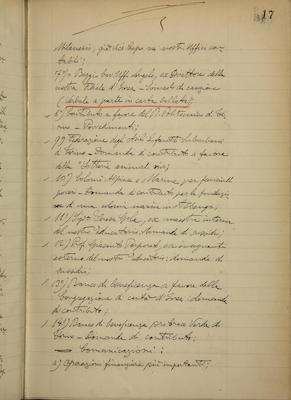 17
Milanesio, già vice Capo dei nostri Uffici con-
tabili;
7º) Baggio Cav. Uff. Angelo, ex Direttore della
nostra Filiale d' Ivrea - Svincolo di cauzione
(delibera a parte in carta bollata);
8º) Contributo a favore del R. Politecnico di To-
rino - Provvedimenti;
9º) Federazione degli Asili Infantili Suburbani
di Torino - Domanda di contributo a favore
10º) Colonie Alpine e Marine per fanciulli
poveri - Domanda di contributo per la fondazio
ne di una colonia marina in
11º) Sig.ra ex maestra interna
del nostro Educatorio, domanda di sussidio;
12º) Prof. Giacinto ex insegnante
esterno del nostro Educatorio; domanda di
sussidio;
13º) Banco di beneficenza a favore della
Congregazione di carità d' Ivrea: domanda
di contributo;
14º) Banco di beneficenza pro Croce Verde di
Torino - Domanda di contributo;
Comunicazioni:
a) Operazioni finanziarie più importanti;